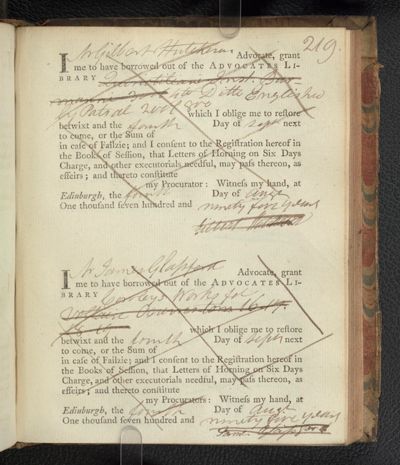 219.
I Mr Gilbert Hutcheson Advocate, grant
me to have borrowed out of the ADVOCATES LI-
BRARY
Ditto English
by Patsal 2 vol 8vo
which I oblige me to restore
betwixt and the fourth Day of Sepr next
to come, or the Sum of
in case of Failzie; and I consent to the Registration hereof in
the Books of Session, that Letters of Horning on Six Days
Charge, and other executorials needful, may pass thereon, as
effeirs; and thereto constitute
my Procurator: Witness my hand, at
Edinburgh, the fourth Day of Augt
One thousand seven hundred and ninety five years
I Mr James Glapford Advocate, grant
me to have borrowed out of the ADVOCATES LI-
BRARY Works fol
which I oblige me to restore
betwixt and the fourth Day of Sepr next
to come, or the Sum of
in case of Failzie; and I consent to the Registration hereof in
the Books of Session, that Letters of Horning on Six Days
Charge, and other executorials needful, may pass thereon, as
effeirs; and thereto constitute
my Procurators: Witness my hand, at
Edinburgh, the fourth Day of Augt
One thousand seven hundred and ninety five years